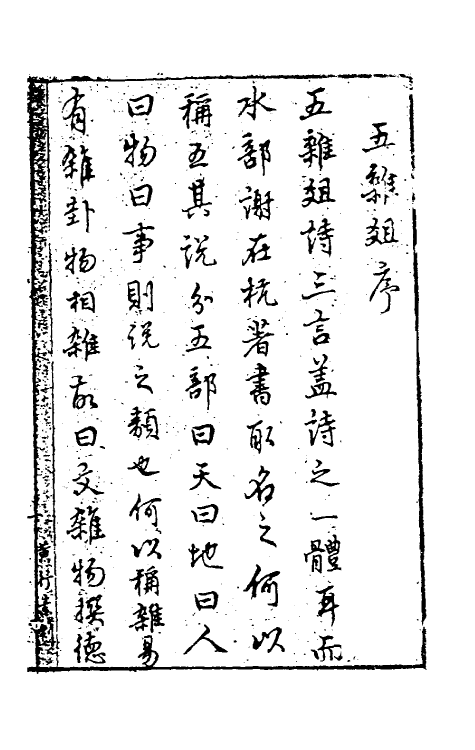 五雜俎序
五雜俎詩三言蓋詩之一體耳而
水部謝在杭著書取名之何以
稱五其說分五部曰天曰地曰人
曰物曰事則說之類也何以稱雜易
有雜卦物相雜故曰文雜物撰德